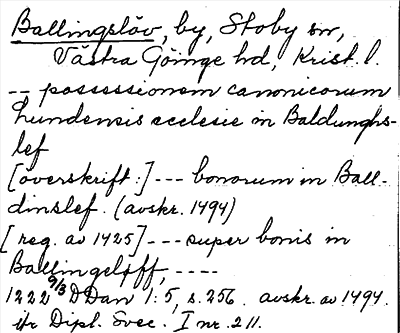 Ballingslöv, by, Stoby sn,
Västra Göinge hd, Krist. l.
-- possessionem canonicorum
lundensis ecclesie in Baldunghs-
lef
[överskrift:] --- bonorum in Ball-
dinslef. (avskr. 1494)
[reg. av 1425] --- super bonis in
Ballingeløff, ----
1222 9/3 DDan 1:5, s. 256. avskr. av 1494.
jfr Dipl. Svec. I nr. 211.